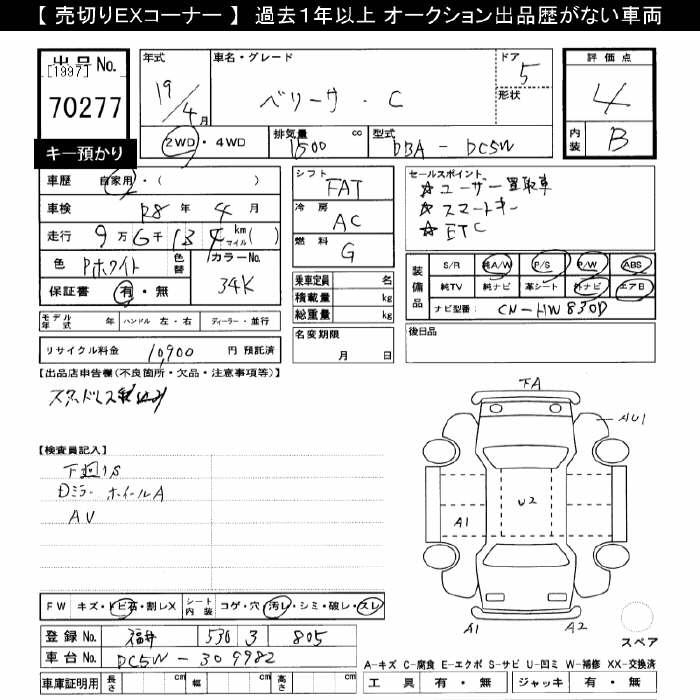 【 売切りEXコーナー 】 過去1年以上 オークション出品歴がない車両
出品 No.
[1997]
70277
キー預かり
年式
19/4月
車名・グレード
ベリーサ・C
ドア
5
形状
評価点
4
内装
B
2WD・4WD
排気量
1500 cc
型式
DBA-DC5W
車歴 自家用・( )
車検 R8 年 4 月
走行 9万6千134 km マイル ( )
色 Pホワイト
色替
カラーNo.
34K
保証書 有・無
シフト
FAT
冷房
AC
燃料
G
乗車定員 名
積載量 kg
総重量 kg
セールスポイント
☆ユーザー買取車
☆スマートキー
☆ETC
装備品
S/R 純A/W P/S P/W ABS
純TV 純ナビ 革シート 外ナビ エアB
ナビ型番 CN-HW830D
モデル年式 年 ハンドル 左・右 ディーラー・並行
リサイクル料金 10,900 円 預託済
名変期限
月 日
後日品
【出品店申告欄(不良箇所・欠品・注意事項等)】
【検査員記入】
下廻りS
Dミラー ホイールA
AV
FA
AU1
U2
A1
A1
A2
スペア
FW キズ・トビ石・割レX
シート内装 コゲ・穴・汚レ・シミ・破レ・スレ
登録 No. 福井 530 3 805
車台 No. DC5W-309982
車庫証明用 長さ cm 幅 cm 高さ cm
A-キズ C-腐食 E-エクボ S-サビ U-凹ミ W-補修 XX-交換済
工具 有・無 ジャッキ 有・無